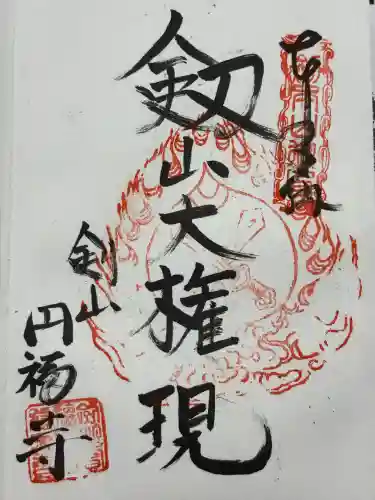 奉拝
釼山大権現
剣山
円福寺